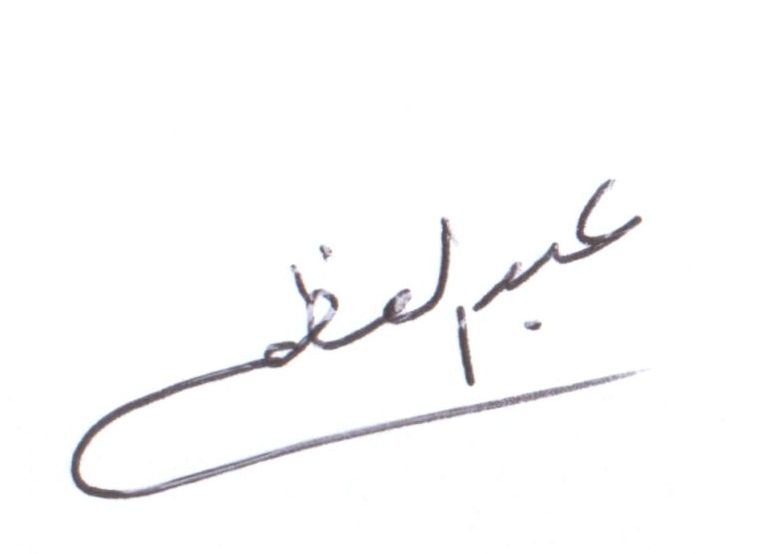 عبدالعظيم